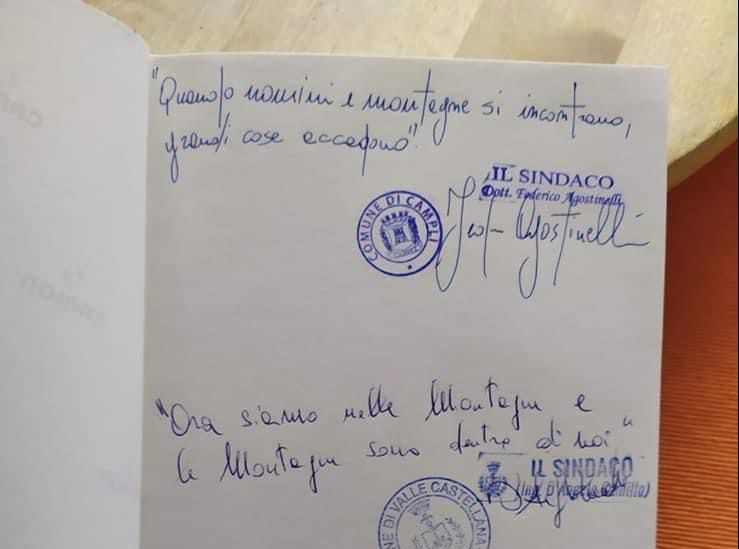 "Quando uomini e montagne si incontrano,
grandi cose accadono"
IL SINDACO
Dott. Federico Agostinelli
COMUNE DI CAMPLI
"Ora siamo nelle Montagne e
le Montagne sono dentro di noi"
IL SINDACO
(Ing. D'Angelo Camillo)
NE DI VALLE CASTELLANA